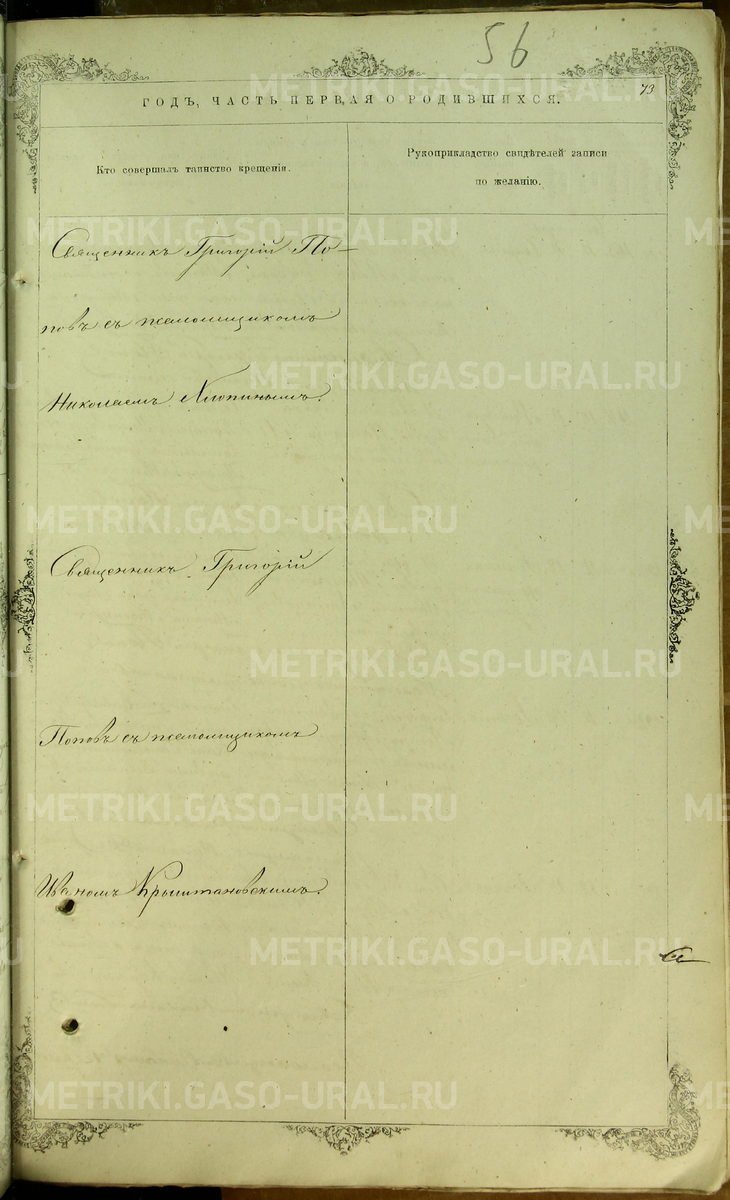 56
73
ГОДЪ, ЧАСТЬ ПЕРВАЯ О РОДИВШИХСЯ.
Кто совершалъ таинство крещенія.
Рукоприкладство свидѣтелей записи
по желанію.
Священникъ Григорій По-
повъ съ псаломщикомъ
Николаемъ Хлопинымъ.
Священникъ Григорій
Поповъ съ псаломщикомъ
Иваномъ Крыштановскимъ.
METRIKI.GASO-URAL.RU